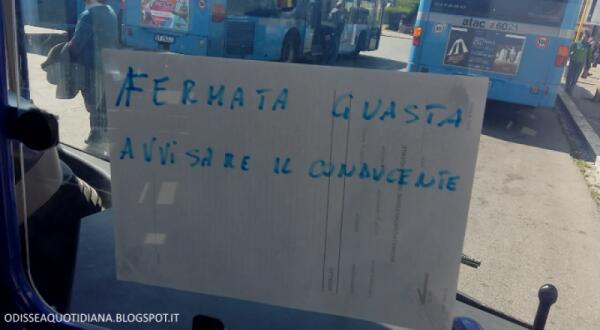 atac 6021
FERMATA GUASTA
AVVISARE IL CONDUCENTE
ODISSEAQUOTIDIANA.BLOGSPOT.IT